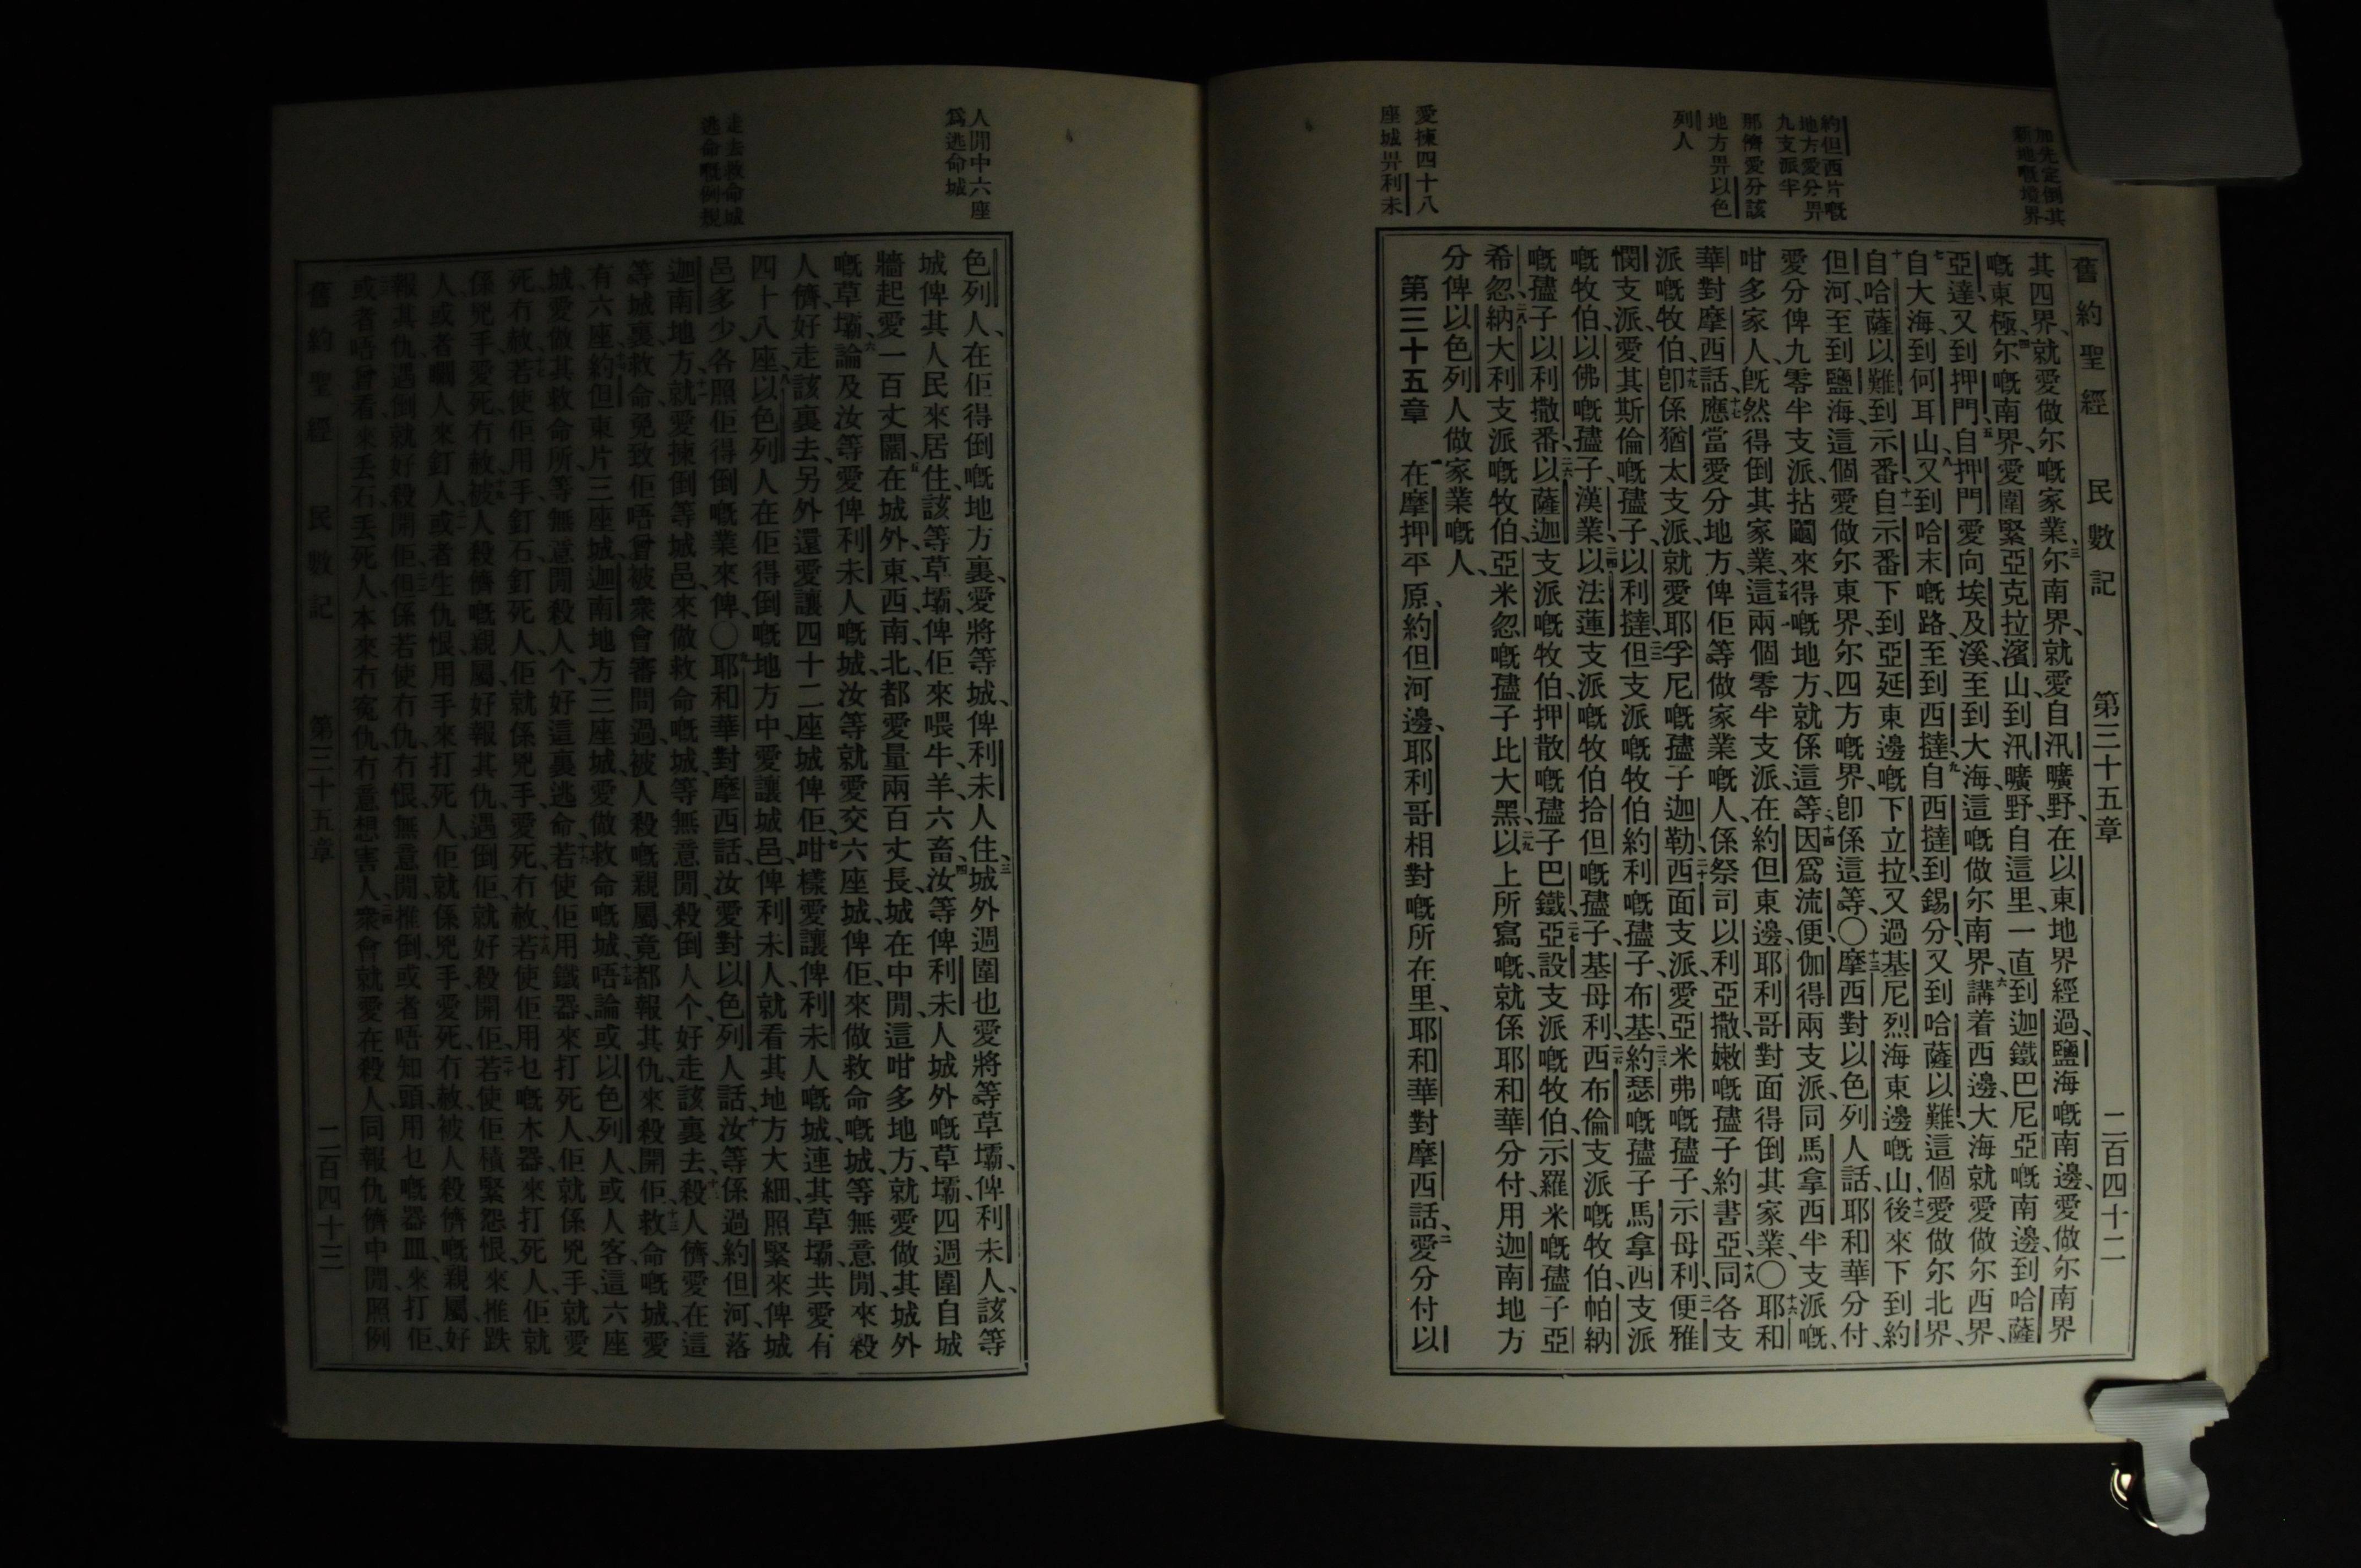 舊約聖經　民數記　第三十五章　二百四十二
加先定倒其
新地嘅境界
約但西片嘅
地方愛分畀
九支派半
那儕愛分該
地方畀以色
列人
愛揀四十八
座城畀利未
其四界、就愛做尔嘅家業、三尔南界、就愛自汛曠野、在以東地界經過、鹽海嘅南邊、愛做尔南界
嘅東極、四尔嘅南界、愛圍緊亞克拉濱山、到汛曠野、自這里、一直到迦鐵巴尼亞嘅南邊、到哈薩
亞達、又到押門、五自押門愛向埃及溪、至到大海、這嘅做尔南界、六講着西邊、大海就愛做尔西界、
七自大海、到何耳山、八又到哈末嘅路、至到西撻、九自西撻到錫分、又到哈薩以難、這個愛做尔北界、
十自哈薩以難、到示番、十一自示番下到亞延東邊嘅下立拉、又過基尼烈海東邊嘅山、十二後來下到約
但河、至到鹽海、這個愛做尔東界、尔四方嘅界、卽係這等、〇十三摩西對以色列人話、耶和華分付、
愛分俾九零半支派、拈鬮來得嘅地方、就係這等、十四因爲流便、伽得兩支派、同馬拿西半支派嘅、
咁多家人、旣然得倒其家業、十五這兩個零半支派、在約但東邊、耶利哥對面得倒其家業、〇十六耶和
華對摩西話、十七應當愛分地方、俾佢等做家業嘅人、係祭司以利亞撒、嫩嘅孻子約書亞、十八同各支
派嘅牧伯、十九卽係猶太支派、就愛耶孚尼嘅孻子迦勒、二十西面支派、愛亞米弗嘅孻子、示母利、二一便雅
憫支派、愛其斯倫嘅孻子、以利撻、二二但支派嘅牧伯約利嘅孻子、布基、二三約瑟嘅孻子馬拿西支派
嘅牧伯、以佛嘅孻子、漢業、二四以法蓮支派嘅牧伯拾但嘅孻子、基母利、二五西布倫支派嘅牧伯、帕納
嘅孻子、以利撒番、二六以薩迦支派嘅牧伯、押散嘅孻子巴鐵、二七亞設支派嘅牧伯、示羅米嘅孻子亞
希忽、二八納大利支派嘅牧伯、亞米忽嘅孻子比大黑、二九以上所寫嘅、就係耶和華分付、用迦南地方
分俾以色列人做家業嘅人、
第三十五章　一在摩押平原、約但河邊、耶利哥相對嘅所在里、耶和華對摩西話、二愛分付以
人閒中六座
爲逃命城
走去救命城
逃命嘅例規
色列人、在佢得倒嘅地方裏、愛將等城、俾利未人住、三城外週圍也愛將等草壩、俾利未人、該等
城俾其人民來居住、該等草壩、俾佢來喂牛羊、六畜、四汝等俾利未人城外嘅草壩、四週圍自城
牆起愛一百丈闊、五在城外、東西南北、都愛量兩百丈長、城在中閒、這咁多地方、就愛做其城外
嘅草壩、六論及汝等愛俾利未人嘅城、汝等就愛交六座城、俾佢來做救命嘅城、等無意閒、來殺
人儕好走該裏去、另外還愛讓四十二座城俾佢、七咁樣愛讓俾利未人嘅城、連其草壩、共愛有
四十八座、八以色列人在佢得倒嘅地方中、愛讓城邑、俾利未人、就看其地方大細、照緊來俾城
邑多少、各照佢得倒嘅業來俾、〇九耶和華對摩西話、汝愛對以色列人話、十汝等係過約但河、落
迦南地方、十一就愛揀倒等城邑、來做救命嘅城、等無意閒、殺倒人个、好走該裏去、十二殺人儕、愛在這
等城裏救命、免致佢唔曾被衆會審問過、被人殺嘅親屬、竟都報其仇、來殺開佢、十三救命嘅城、愛
有六座、十四約但東片三座城、迦南地方三座城、愛做救命嘅城、十五唔論或以色列人、或人客、這六座
城愛做其救命所、等無意閒殺人个、好這裏逃命、十六若使佢用鐵器來打死人、佢就係兇手、就愛
死冇赦、十七若使佢用手釘石、釘死人、佢就係兇手、愛死冇赦、十八若使佢用乜嘅木器、來打死人、佢就
係兇手、愛死冇赦、十九被人殺儕嘅親屬、好報其仇、遇倒佢、就好殺開佢、二十若使佢積緊怨恨、來推跌
人、或者嚫人來釘人、二一或者生仇恨、用手來打死人、佢就係兇手、愛死冇赦、被人殺儕嘅親屬、好
報其仇、遇倒就好殺開佢、二二但係若使冇仇、冇恨、無意閒、推倒、或者唔知頭、用乜嘅器皿、來打佢、
二三或者唔曾看來丢石、丢死人、本來冇寃仇、冇意想害人、二四衆會就愛在殺人、同報仇儕中閒、照例
舊約聖經　民數記　第三十五章　二百四十三